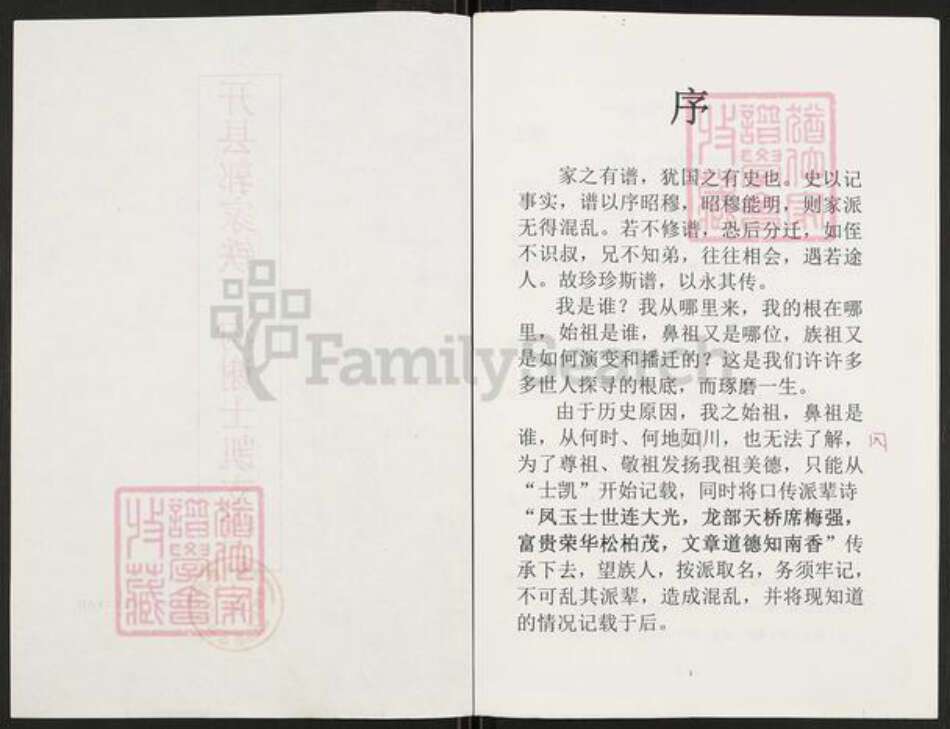 序
家之有谱，犹国之有史也。史以记
事实，谱以序昭穆，昭穆能明，则家派
无得混乱。若不修谱，恐后分迁，如侄
不识叔，兄不知弟，往往相会，遇若途
人。故珍珍斯谱，以永其传。
我是谁？我从哪里来，我的根在哪
里，始祖是谁，鼻祖又是哪位，族祖又
是如何演变和播迁的？这是我们许许多
多世人探寻的根底，而琢磨一生。
由于历史原因，我之始祖，鼻祖是
谁，从何时、何地如川，也无法了解，
为了尊祖、敬祖发扬我祖美德，只能从
“士凯”开始记载，同时将口传派辈诗
“凤玉士世连大光，龙部天桥席梅强，
富贵荣华松柏茂，文章道德知南香”传
承下去，望族人，按派取名，务须牢记，
不可乱其派辈，造成混乱，并将现知道
的情况记载于后。
1
FamilySearch